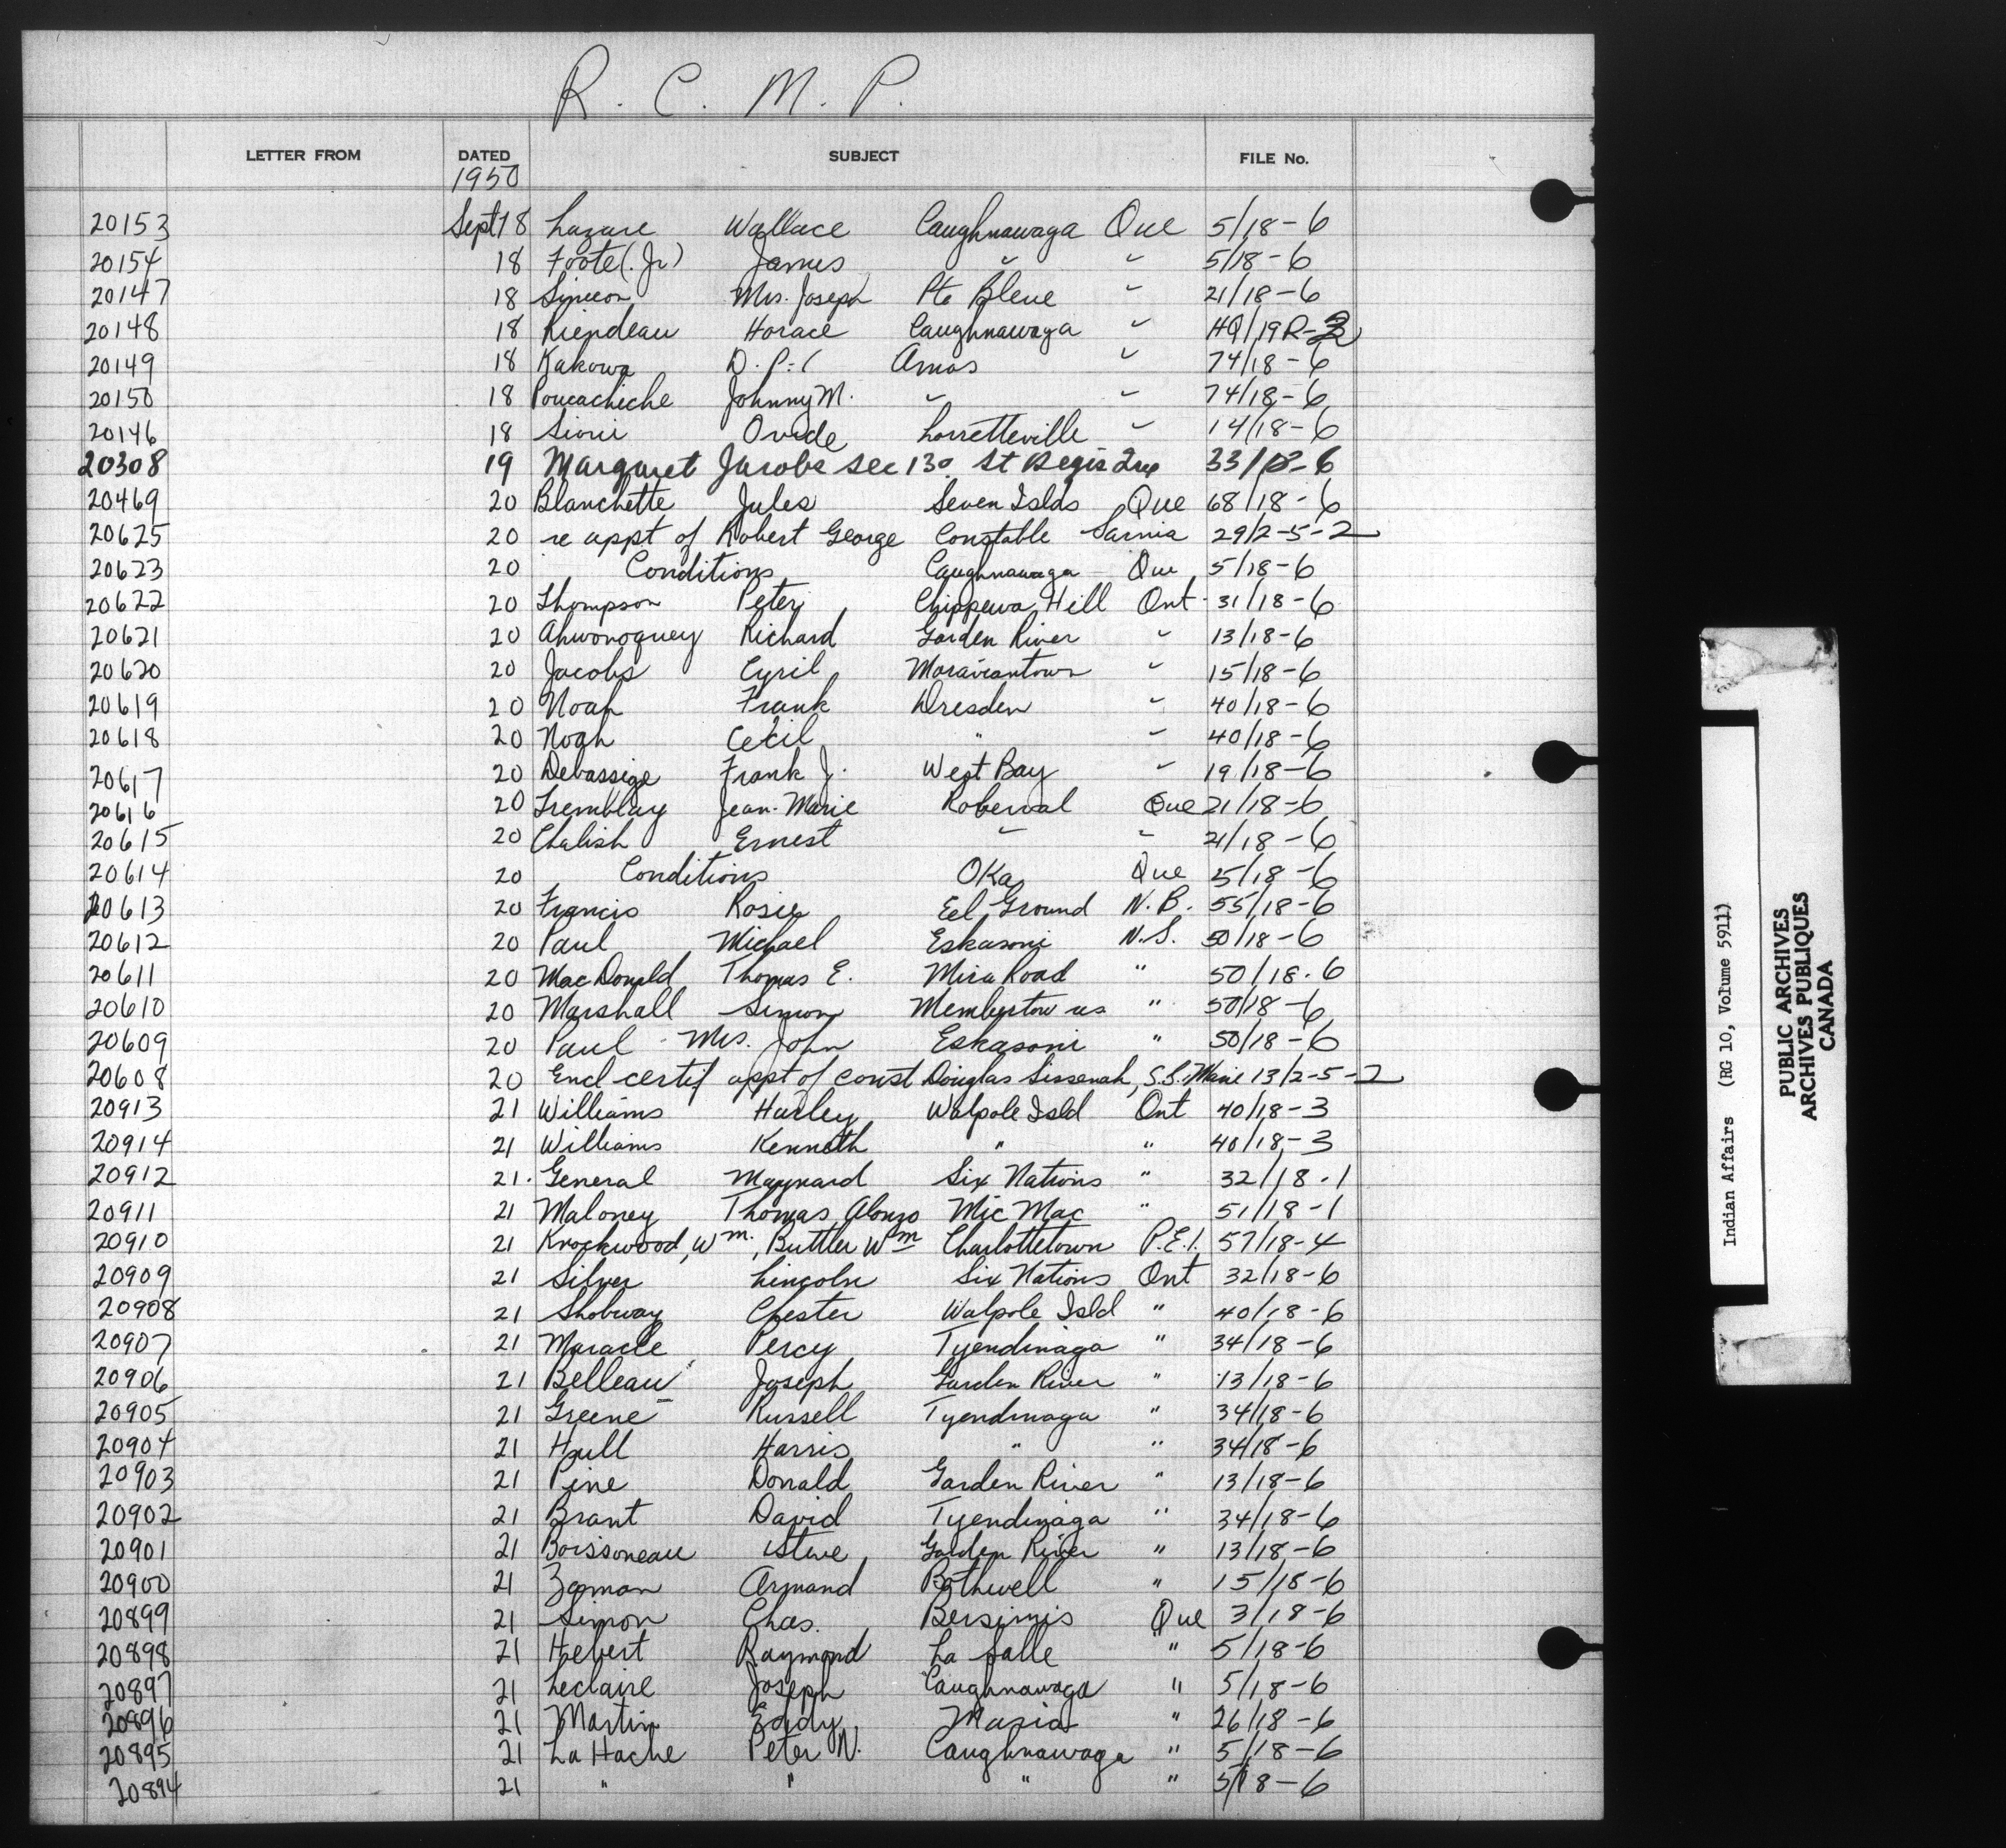 R. C. M. P.
LETTER FROM DATED SUBJECT FILE No.
1950
20153 Sept 18 Lazare Wallace Caughnawaga Que 5/18-6
20154 18 Foote (Jr) James " " 5/18-6
20147 18 Simeon Mrs. Joseph Pte Bleue " 21/18-6
20148 18 Riendeau Horace Caughnawaga " HQ/19R-2
20149 18 Kakowa Amos " 74/18-6
20150 18 Poucachiche Johnny M. " " 74/18-6
20146 18 Sioui Ovide Lorretteville " 14/18-6
20308 19 Margaret Jacobs sec 130 St Regis Que 33/18-6
20469 20 Blanchette Jules Seven Islds Que 68/18-6
20625 20 re appt of Robert George Constable Sarnia 29/2-5-2
20623 20 Conditions Caughnawaga Que 5/18-6
20622 20 Thompson Peter Chippewa Hill Ont 31/18-6
20621 20 Ahwonoquey Richard Garden River " 13/18-6
20620 20 Jacobs Cyril Moraviantown " 15/18-6
20619 20 Noah Frank Dresden " 40/18-6
20618 20 Noah Cecil " " 40/18-6
20617 20 Debassige Frank J. West Bay " 19/18-6
20616 20 Tremblay Jean-Marie Roberval Que 21/18-6
20615 20 Chalish Ernest " " 21/18-6
20614 20 Conditions Oka Que 5/18-6
20613 20 Francis Rosie Eel Ground N.B. 55/18-6
20612 20 Paul Michael Eskasoni N.S. 50/18-6
20611 20 MacDonald Thomas E. Mira Road " 50/18.6
20610 20 Marshall Simon Membertou " 50/18-6
20609 20 Paul Mrs. John Eskasoni " 50/18-6
20608 20 Encl certif appt of const Douglas Sissenah, S.S. Marie 13/2-5-2
20913 21 Williams Harley Walpole Isld Ont 40/18-3
20914 21 Williams Kenneth " " 40/18-3
20912 21. General Maynard Six Nations " 32/18.1
20911 21 Maloney Thomas Alonzo Mic Mac " 51/18-1
20910 21 Knockwood, Wm., Buttler Wm Charlottetown P.E.I. 57/18-4
20909 21 Silver Lincoln Six Nations Ont 32/18-6
20908 21 Shobway Chester Walpole Isld " 40/18-6
20907 21 Maracle Percy Tyendinaga " 34/18-6
20906 21 Belleau Joseph Garden River " 13/18-6
20905 21 Greene Russell Tyendinaga " 34/18-6
20904 21 Hull Harris " " 34/18-6
20903 21 Pine Donald Garden River " 13/18-6
20902 21 Brant David Tyendinaga " 34/18-6
20901 21 Boissoneau Steve Garden River " 13/18-6
20900 21 Armand Bothwell " 15/18-6
20899 21 Simon Chas. Bersimis Que 3/18-6
20898 21 Hebert Raymond La Salle " 5/18-6
20897 21 Leclaire Joseph Caughnawaga " 5/18-6
20896 21 Martin Eddy Maria " 26/18-6
20895 21 La Hache Peter N. Caughnawaga " 5/18-6
20894 21 " " " " 5/18-6
Indian Affairs (RG 10, Volume 5911)
PUBLIC ARCHIVES
ARCHIVES PUBLIQUES
CANADA